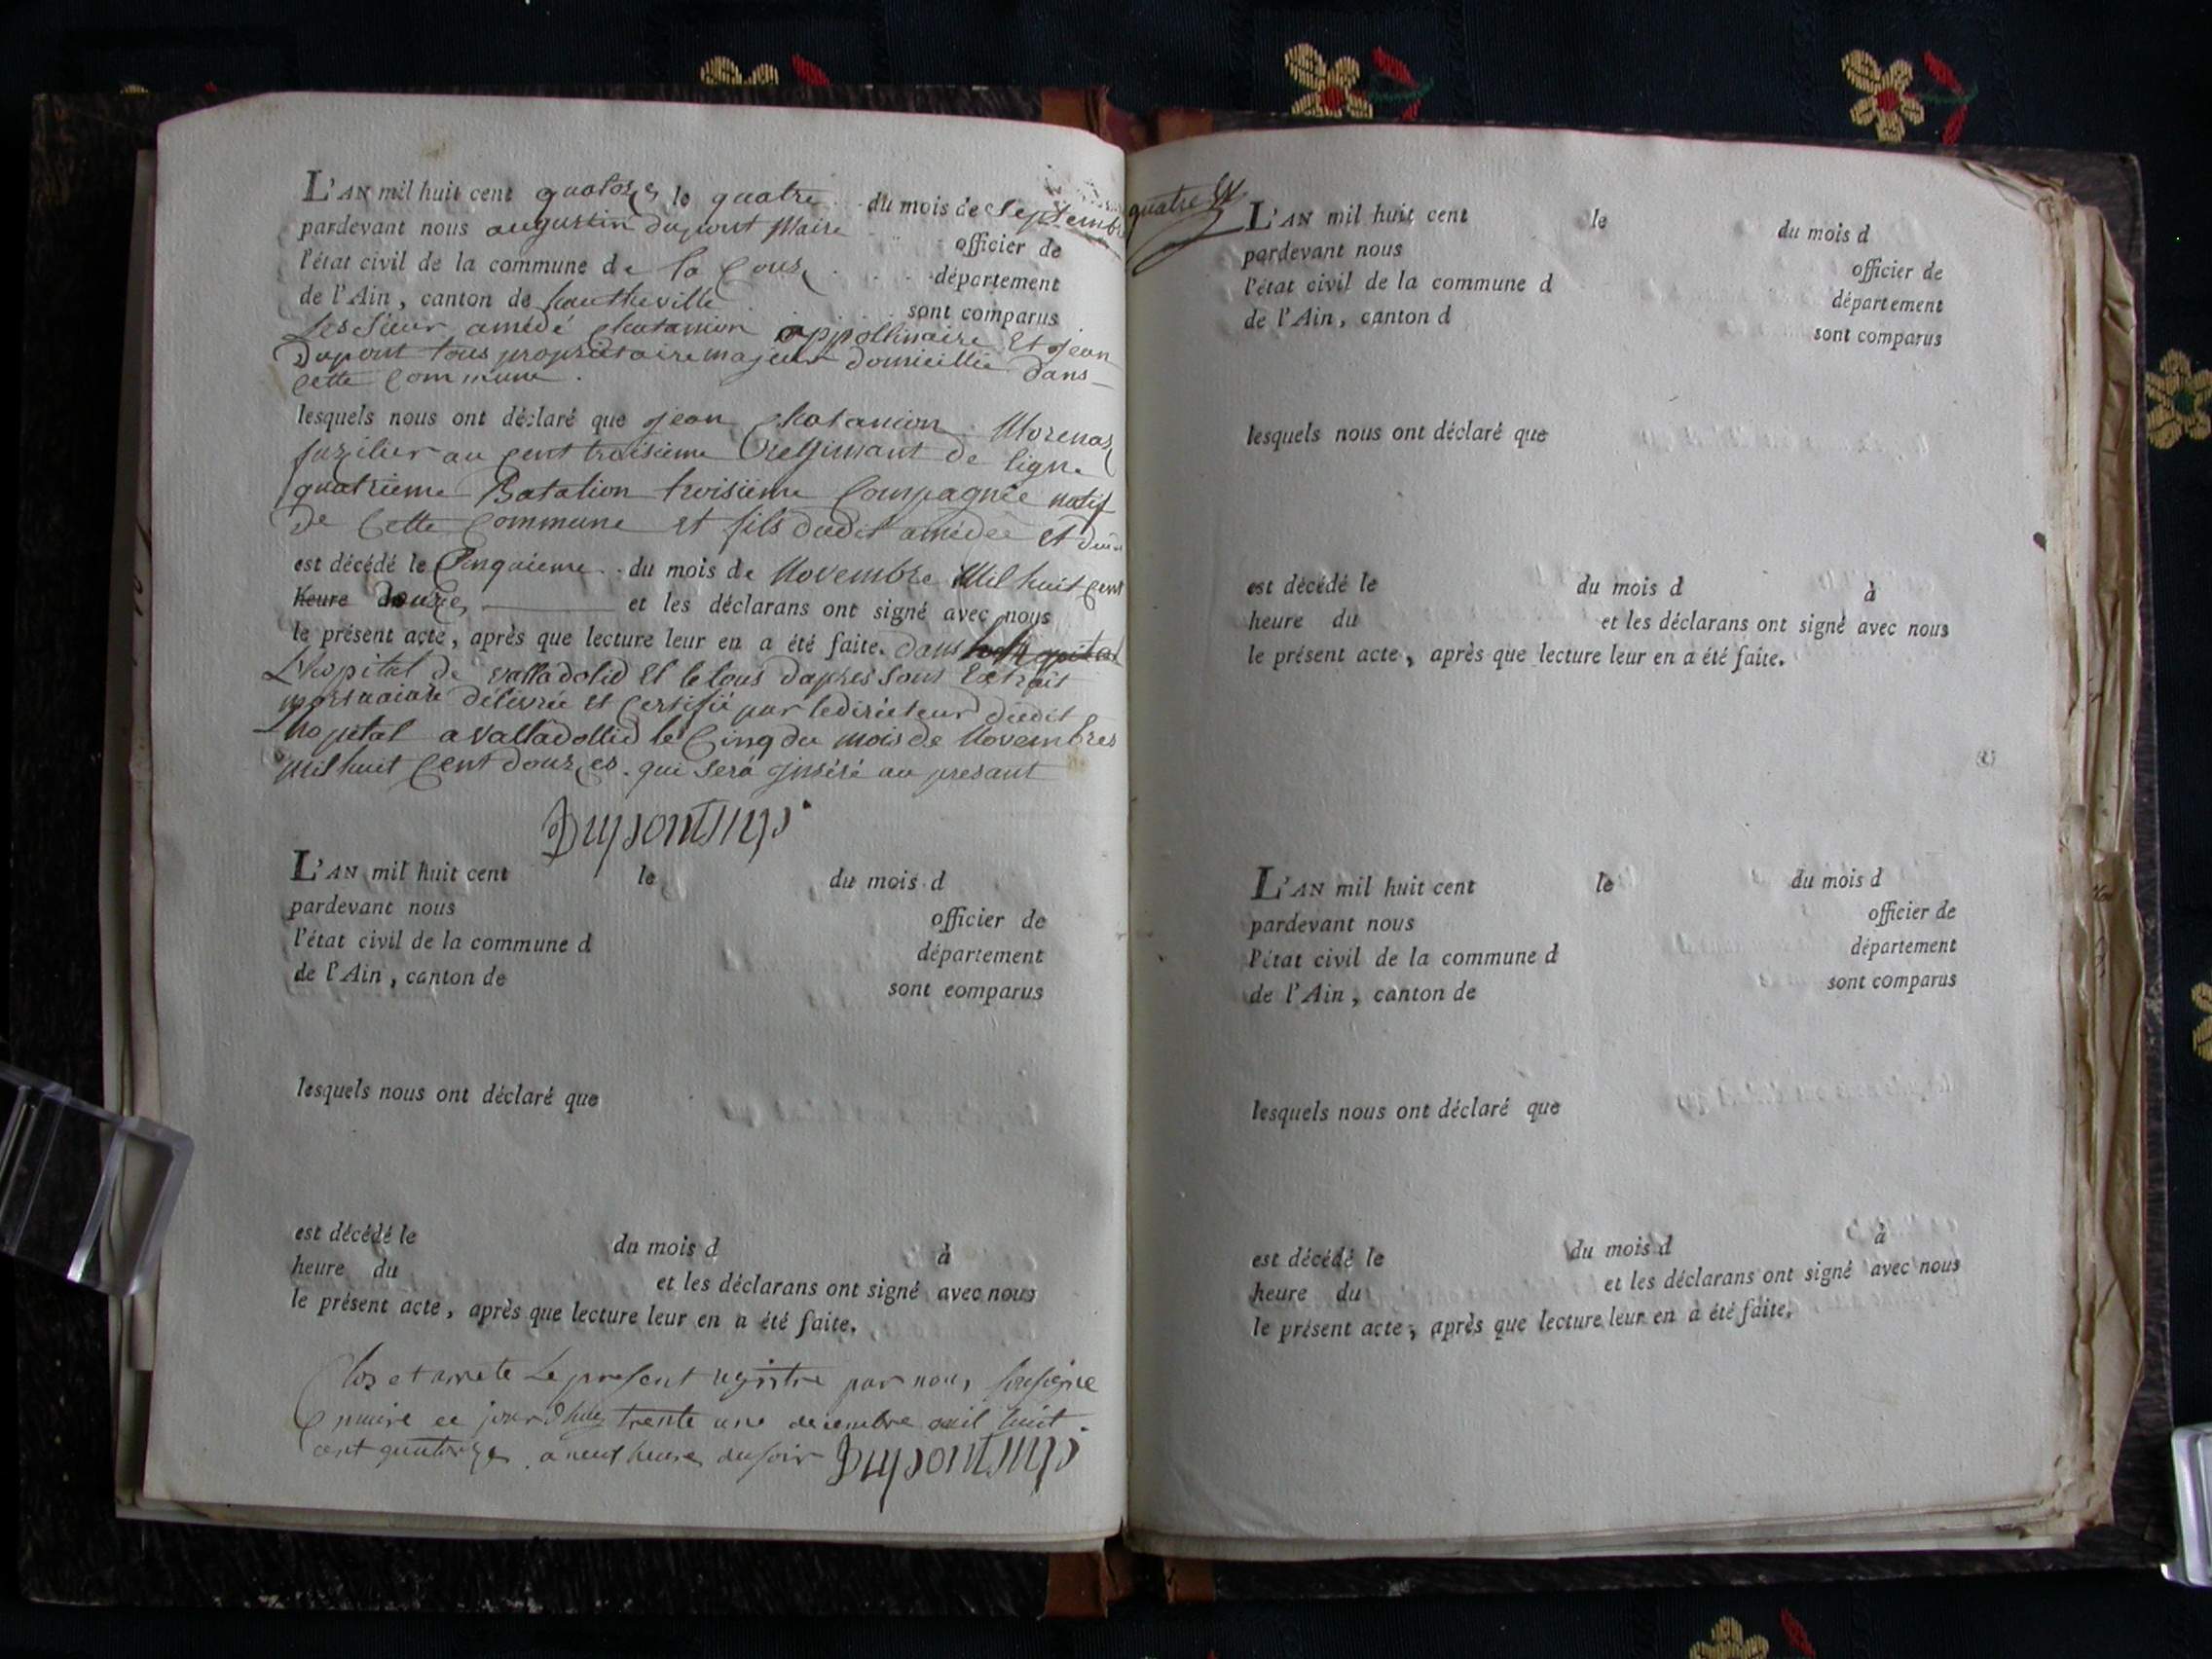 L'AN mil huit cent quatorze le quatre du mois de Septembre
pardevant nous augustin dupont Maire officier de
l'état civil de la commune de la Couz département
de l'Ain, canton de hautheville sont comparus
amédé appollinaire Et jean
Dupont tous propriétaire majeur domicillié dans
cette Commune.
lesquels nous ont déclaré que jean
fuzilier au Cent troisieme de ligne
quatrieme Batalion troisieme Compagnie natif
de Cette Commune et fils dudit amédée et
est décédé le Cinquieme du mois de Novembre Mil huit Cent
heure douze et les déclarans ont signé avec nous
le présent acte, après que lecture leur en a été faite. dans
L'hopital de valladolid Et le tous dapres sont Extrait
délivré et Certifié par le diricteur dudit
hopital a valladollid le Cinq du mois de Novembres
Mil huit Cent douzes. qui sera inséré au presant
Dupont
L'AN mil huit cent le du mois d
pardevant nous officier de
l'état civil de la commune d département
de l'Ain, canton de sont comparus
lesquels nous ont déclaré que
est décédé le du mois d à
heure du et les déclarans ont signé avec nous
le présent acte, après que lecture leur en a été faite.
Clos et arrete Le present registre par nous sousigne
maire ce jour trente une decembre mil huit
cent quatorze a neuf heures du soir Dupont
quatre
L'AN mil huit cent le du mois d
pardevant nous officier de
l'état civil de la commune d département
de l'Ain, canton d sont comparus
lesquels nous ont déclaré que
est décédé le du mois d à
heure du et les déclarans ont signé avec nous
le présent acte, après que lecture leur en a été faite.
L'AN mil huit cent le du mois d
pardevant nous officier de
l'état civil de la commune d département
de l'Ain, canton de sont comparus
lesquels nous ont déclaré que
est décédé le du mois d à
heure du et les déclarans ont signé avec nous
le présent acte, après que lecture leur en a été faite.